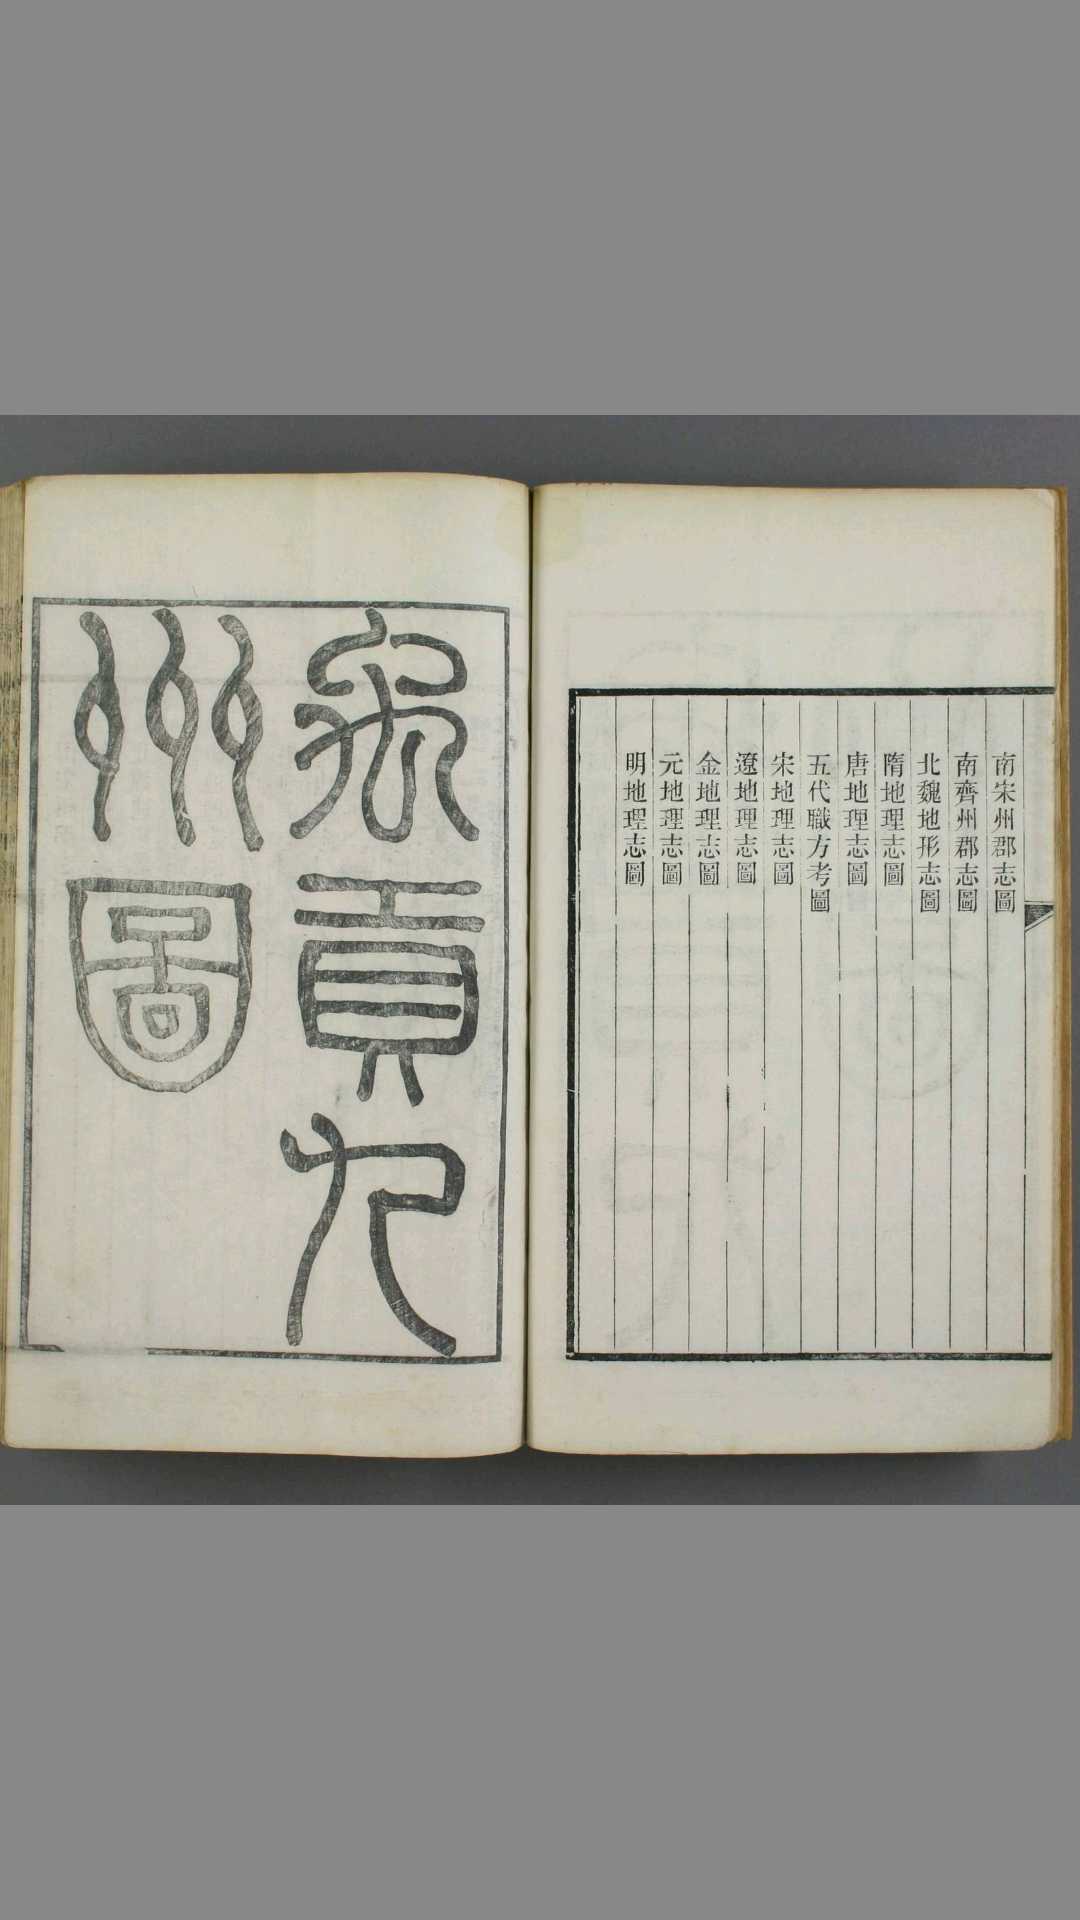 南宋州郡志圖
南齊州郡志圖
北魏地形志圖
隋地理志圖
唐地理志圖
五代職方考圖
宋地理志圖
遼地理志圖
金地理志圖
元地理志圖
明地理志圖
禹貢九
州圖